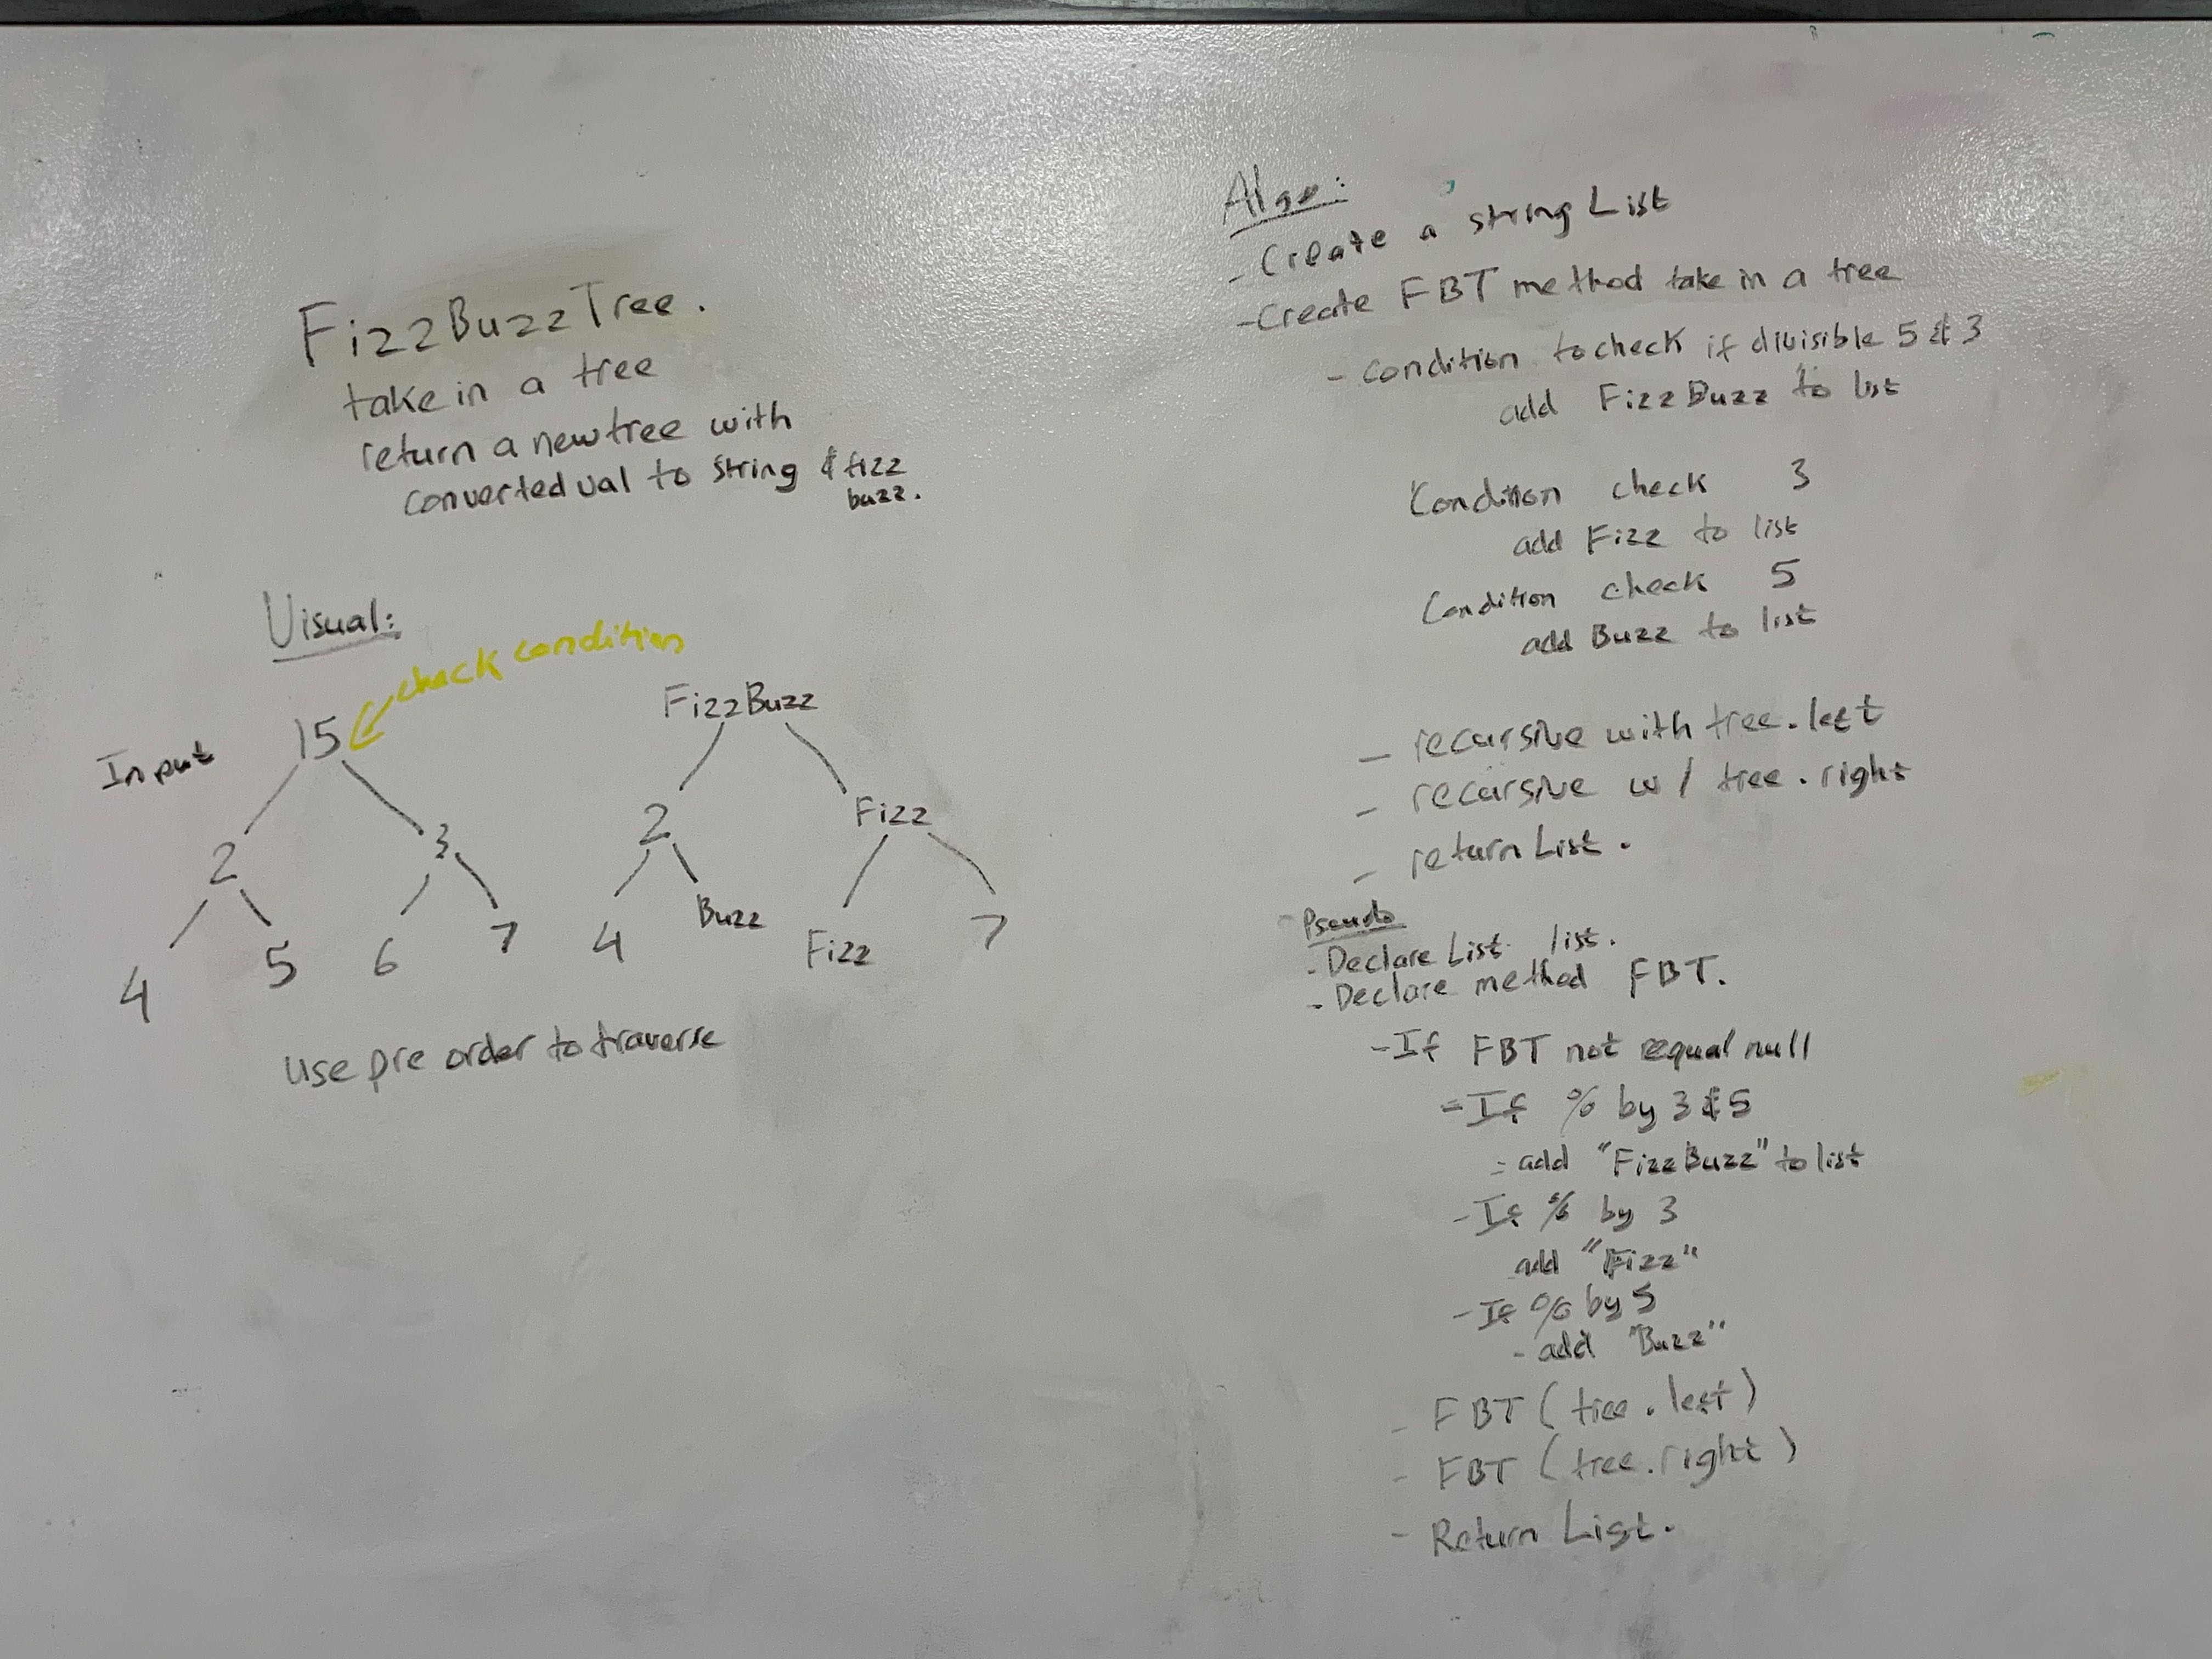 FizzBuzzTree.
take in a tree
return a new tree with
converted val to string & fizz
buzz.
Visual:
check condition
Input
15
2 3
4 5 6 7
FizzBuzz
2 Fizz
4 Buzz Fizz 7
use pre order to traverse
Algo:
- Create a string List
- Create FBT method take in a tree
- Condition to check if divisible 5 & 3
add FizzBuzz to list
Condition check 3
add Fizz to list
Condition check 5
add Buzz to list
- recursive with tree.left
- recursive w/ tree.right
- return List.
Pseudo
- Declare List list.
- Declare method FBT.
- If FBT not equal null
- If % by 3 & 5
- add "FizzBuzz" to list
- If % by 3
add "Fizz"
- If % by 5
- add "Buzz"
- FBT (tree.left)
- FBT (tree.right)
- Return List.